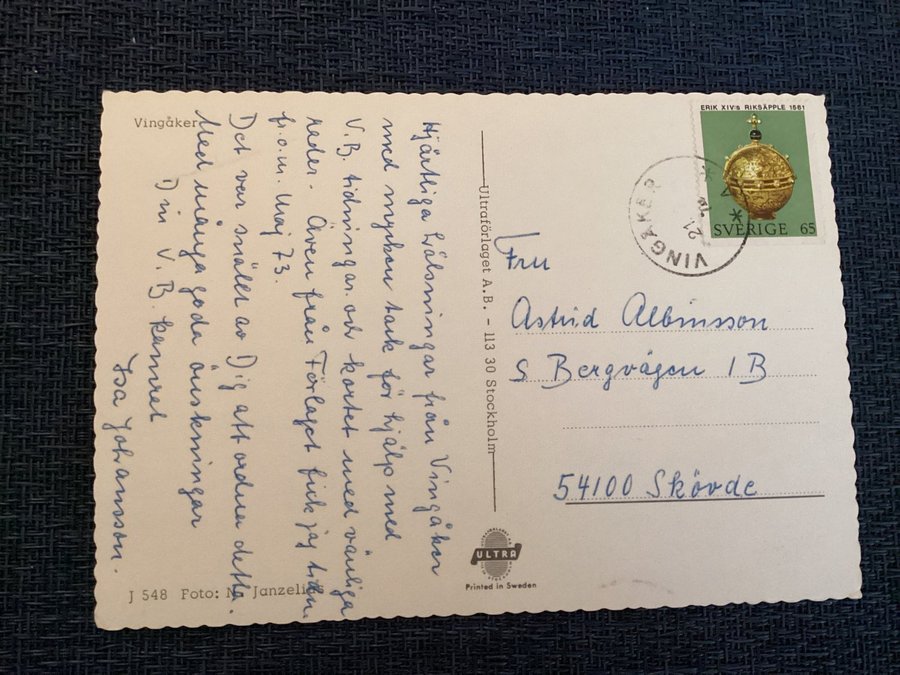 Vingåker
Hjärtliga hälsningar från Vingåker
med mycken tack för hjälp med
V.B. tidningar och kortet med vänliga
rader. Även från Förlaget fick jag tidn.
fr.o.m. Maj 73.
Det var snällt av Dig att ordna detta.
Med många goda önskningar
Din V.B kamrat
Isa Johansson.
J 548 Foto: N. Janzelid
Ultraförlaget A.B. - 113 30 Stockholm
ULTRA
Printed in Sweden
ERIK XIV:s RIKSÄPPLE 1561
SVERIGE 65
VINGÅKER
21
Fru
Astrid Albinsson
S Bergvägen 1B
54100 Skövde